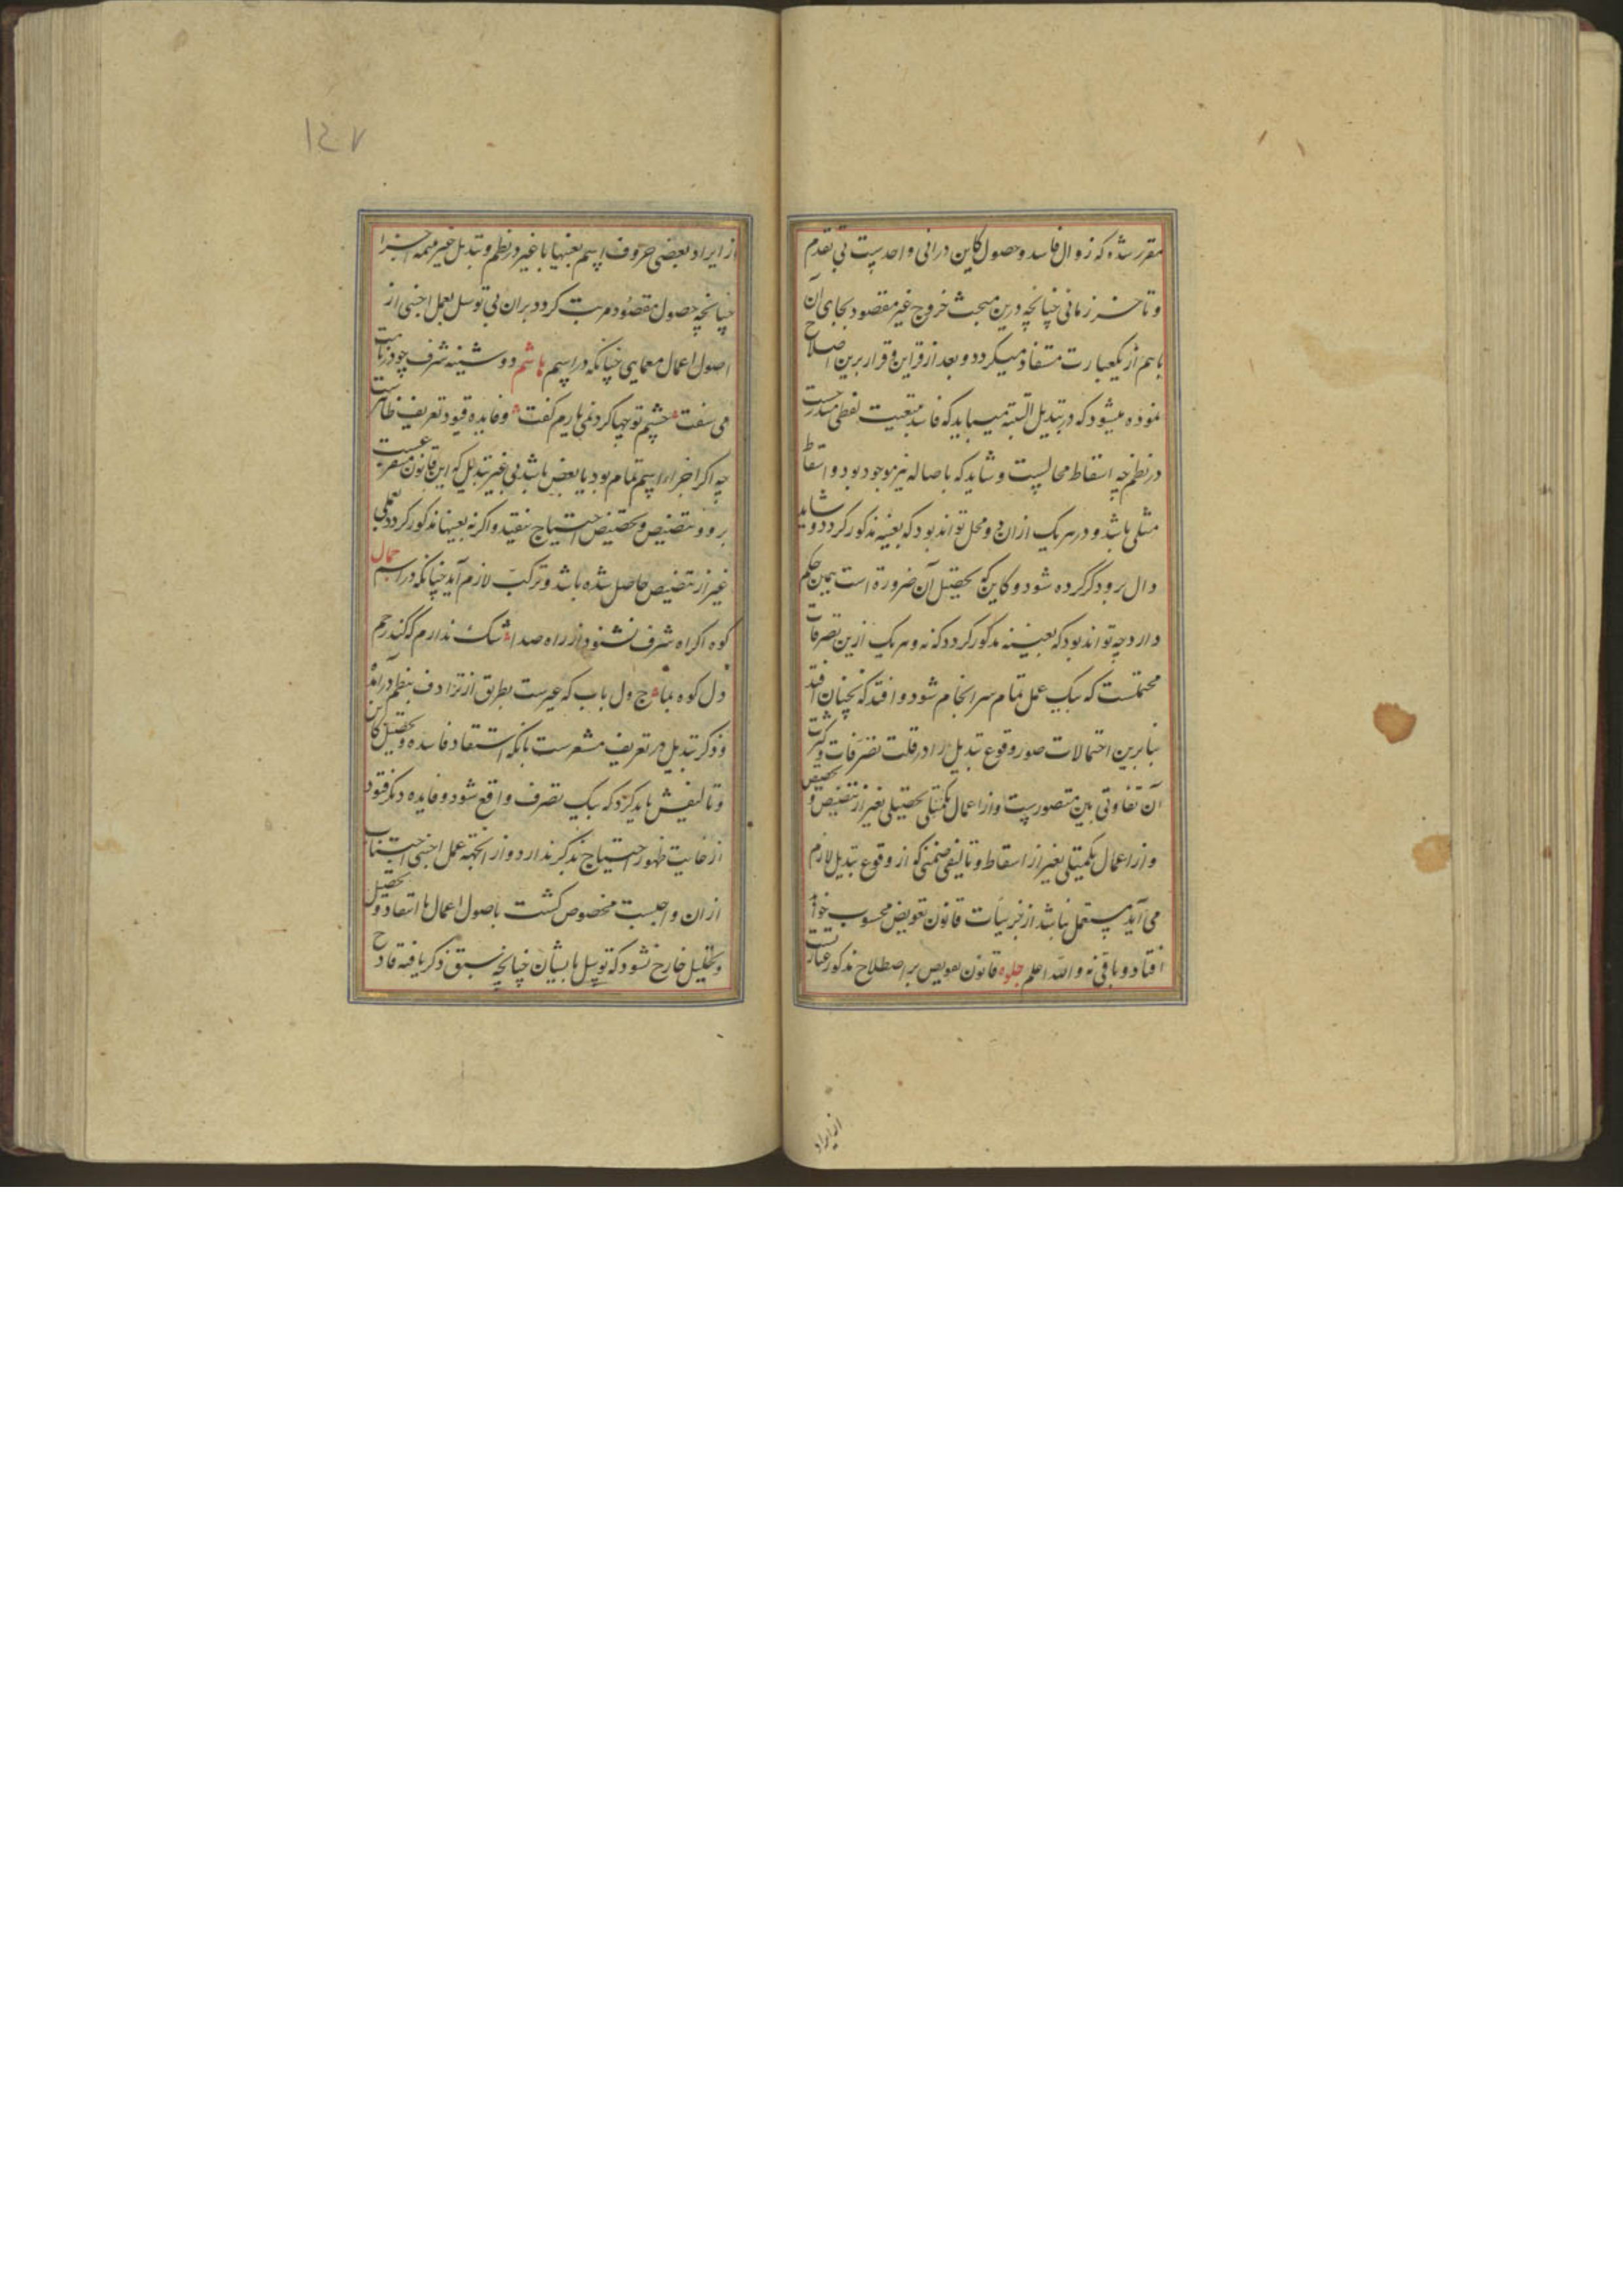 مقرر شده که زوال فاسد و حصول کاین در آنی واحدیست بی تقدم
و تاخر زمانی چنانچه درین مبحث خروج غیر مقصود بجای آن
باسم از یکعبارت مستفاد میکردد و بعد از قراین و قرار برین اصلاح
نموده میشود که در تبدیل البته میباید که فاسد بتبعیت لفظی مندرجست
در نظم چه اسقاط محالیست و شاید که باصاله نیز موجود بود و اسقاط
مثلی باشد و در هر یک از ان دو محل تواند بود که بعینه مذکور کردد و شاید
دال برو ذکر کرده شود و کاین که تحصیل آن ضرورة است همین حکم
دارد چه تواند بود که بعینه مذکور کردد که نه و هر یک ازین تصرفات
محتملست که بیک عمل تمام سرانجام شود و افتد که نچنان افتد
بنا برین احتمالات صور وقوع تبدیل را در قلت تصرفات و کثرت
آن تفاوتی بین متصورست و از اعمال تکمیلی تحصیلی بغیر از تنصیص و تخصیص
و از اعمال تکمیلی بغیر از اسقاط و تالیف ضمنی که از وقوع تبدیل لازم
می آید مستعمل نباشد از جزییات قانون تعویض محسوب خواهد
افتاد و باقی نه و الله اعلم جلوه قانون تعویض بر اصطلاح مذکور عبارتست
از ایراد
۱۴۷
از ایراد بعضی حروف اسم بعینها با غیر در نظم و تبدیل غیر بتمه اجزا
چنانچه حصول مقصود مرتب کردد بران بی توسل بعمل اجنبی از
اصول اعمال معمایی چنانکه در اسم هاشم دوشینه شرف چو در نامت
می سفت چشم تو جها کرد نمی یارم کفت و فایده قیود تعریف ظاهرست
چه اکر اجزاء اسم تمام بود یا بعض باشد بی غیر تبدیل که این قانون متفرعست
برو و بتنصیص و تخصیص احتیاج نیفتد و اکر نه بعینها مذکور کردد بعملی
غیر از تنصیص حاصل شده باشد و ترکیب لازم آید چنانکه در اسم جمال
کوه اکر آه شرف نشنود از راه صدا شک ندارم که کند رحم
دل کوه بما ج ول باب که عیرست بطریق از ترادف بنظم در آمد
و ذکر تبدیل در تعریف مشعرست بانکه استقاد فاسده و تحصیل کاین
و تالیفش باید کرد که بیک تصرف واقع شود و فایده دیکر قیود
از غایت ظهور احتیاج بذکر ندارد و از انجهه عمل اجنبی که اجتناب
از ان واجبست مخصوص کشت باصول اعمال تا انتقاد و تحصیل
و تحلیل خارج نشود که توسل بایشان چنانچه سبق ذکر یافته قادح